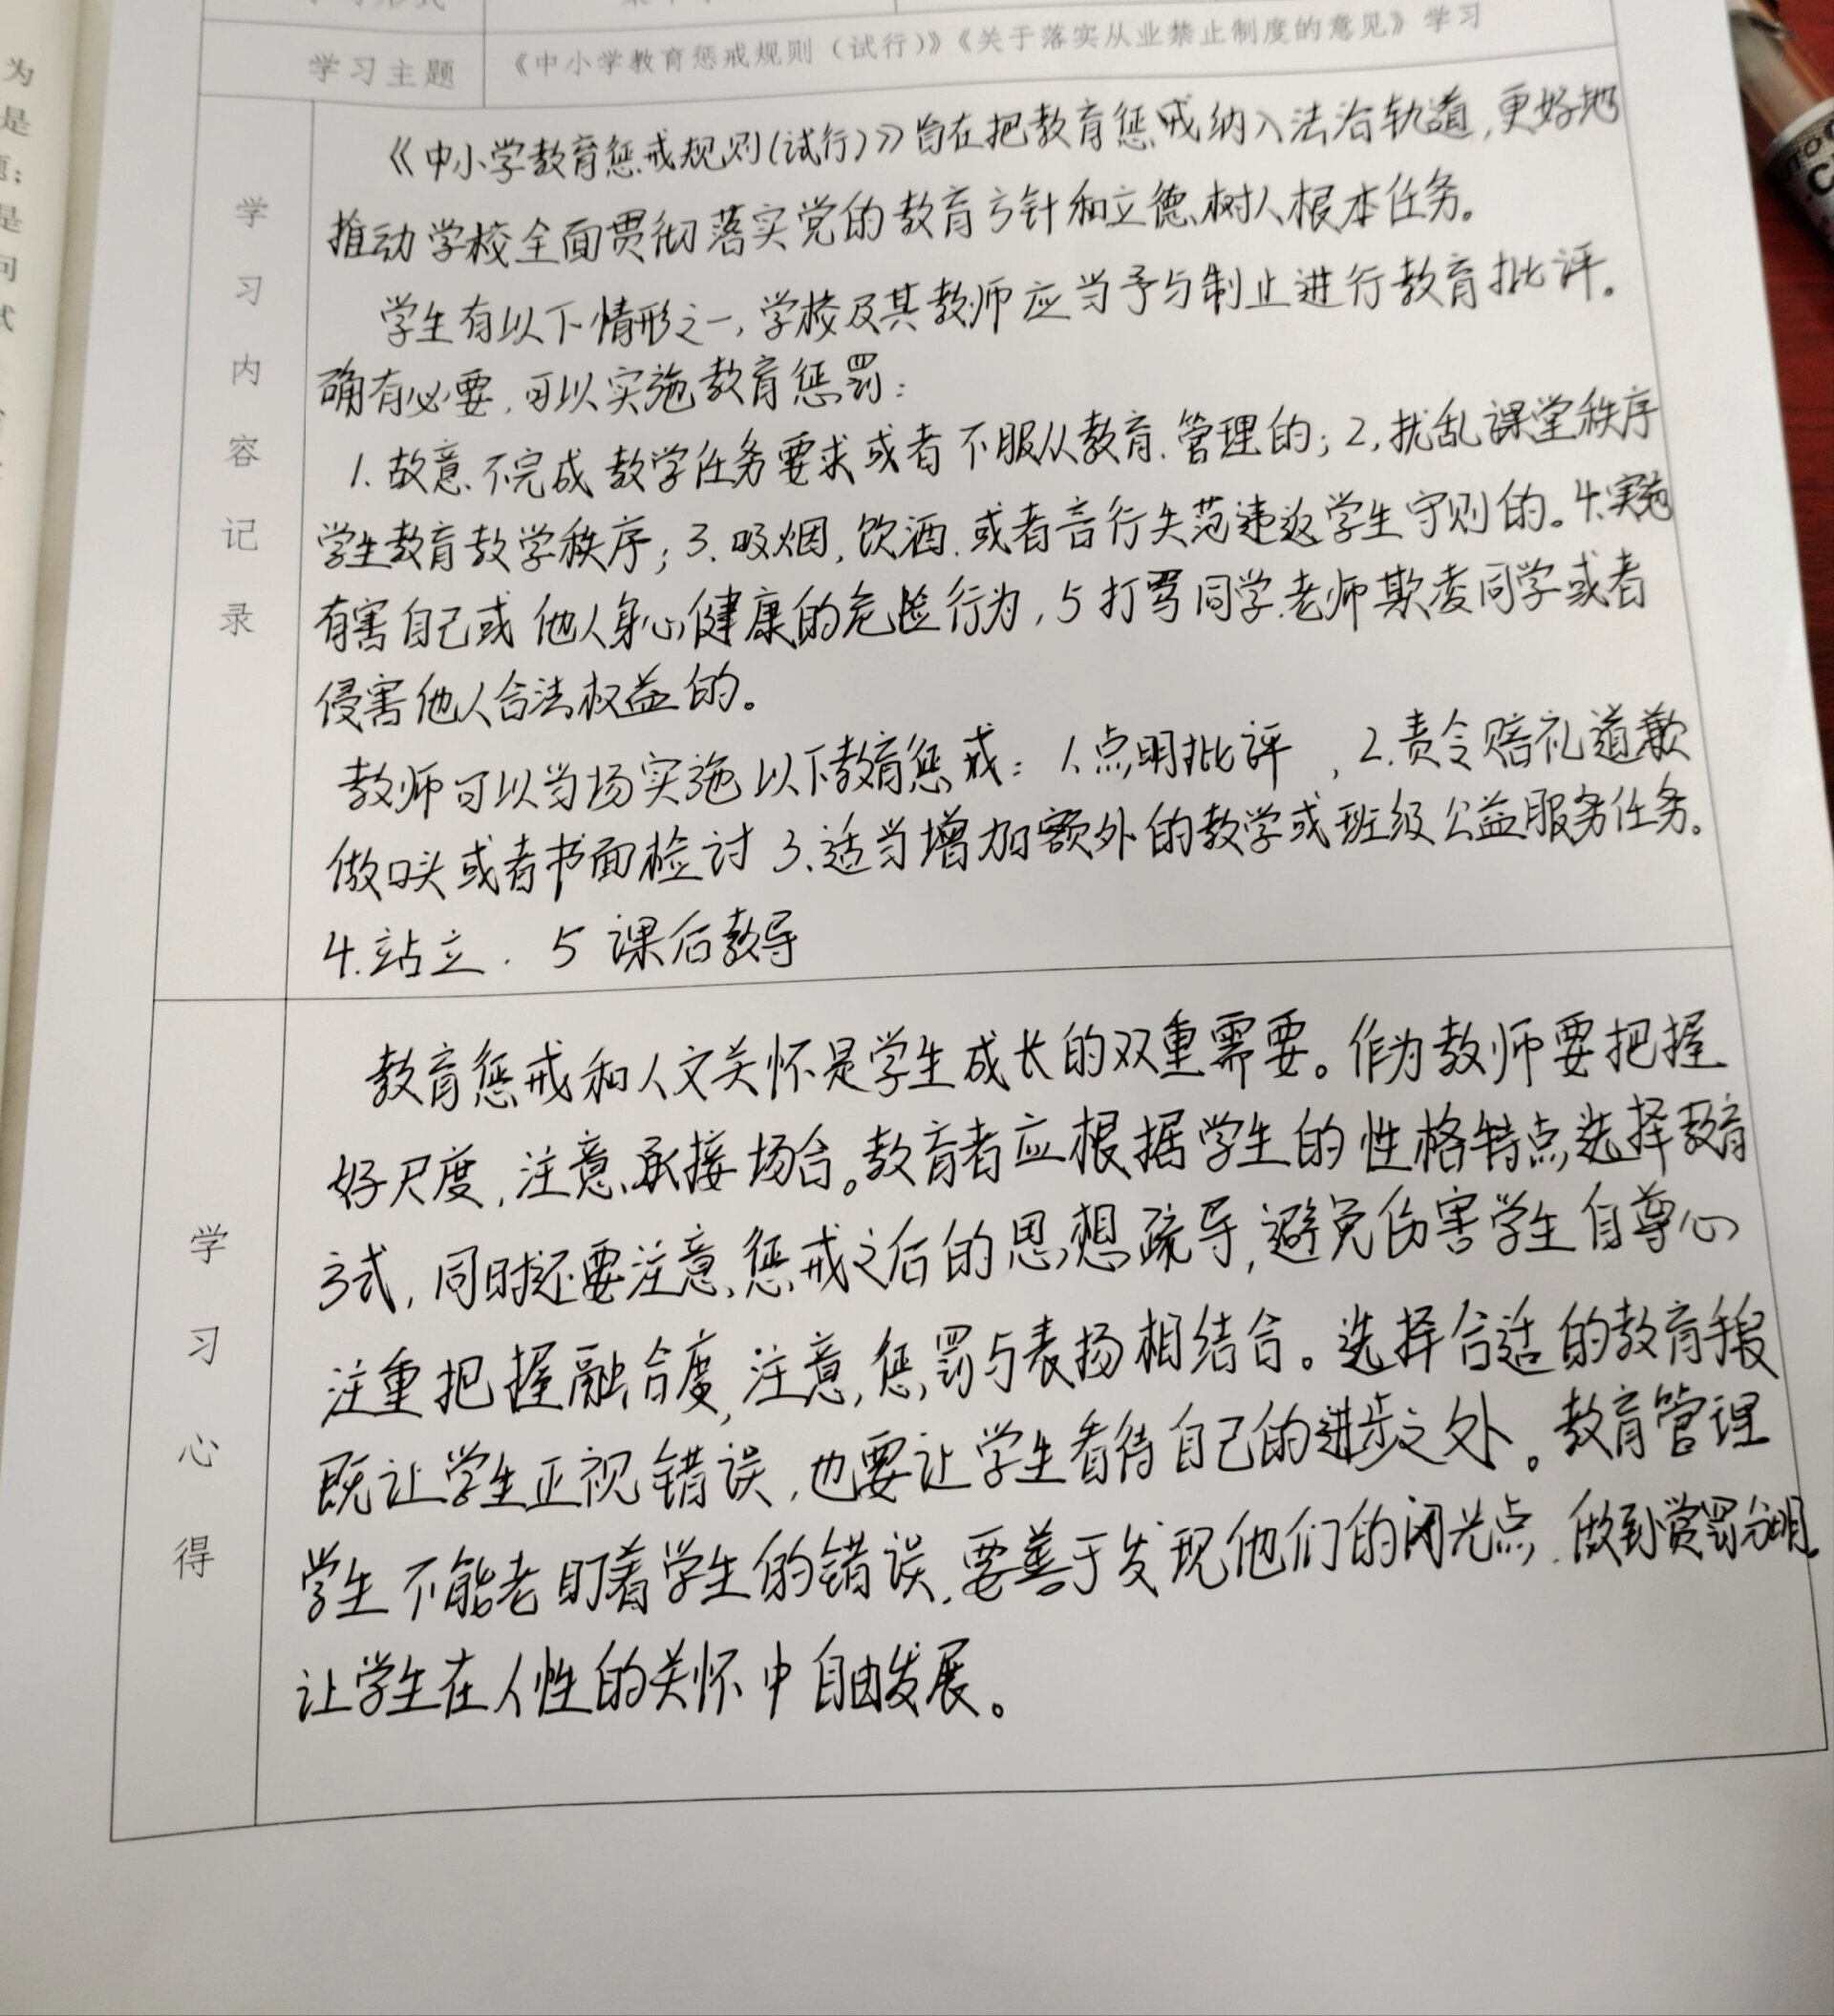 学习主题
《中小学教育惩戒规则（试行）》《关于落实从业禁止制度的意见》学习
学习内容记录
《中小学教育惩戒规则(试行)》旨在把教育惩戒纳入法治轨道,更好地
推动学校全面贯彻落实党的教育方针和立德树人根本任务。
学生有以下情形之一,学校及其教师应当予与制止进行教育批评。
确有必要,可以实施教育惩罚:
1.故意不完成教学任务要求或者不服从教育、管理的;2,扰乱课堂秩序
学生教育教学秩序;3.吸烟,饮酒.或者言行失范违返学生守则的。4.实施
有害自己或他人身心健康的危险行为,5打骂同学.老师欺凌同学或者
侵害他人合法权益的。
教师可以当场实施以下教育惩戒:1.点明批评,2.责令赔礼道歉
做口头或者书面检讨3.适当增加额外的教学或班级公益服务任务。
4.站立.5课后教导
学习心得
教育惩戒和人文关怀是学生成长的双重需要。作为教师要把握
好尺度,注意承接场合。教育者应根据学生的性格特点选择教育
方式,同时还要注意惩戒之后的思想疏导,避免伤害学生自尊心
注重把握融合度,注意,惩罚与表扬相结合。选择合适的教育手段
既让学生正视错误,也要让学生看待自己的进步之处。教育管理
学生不能老盯着学生的错误,要善于发现他们的闪光点.做到赏罚分明.
让学生在人性的关怀中自由发展。